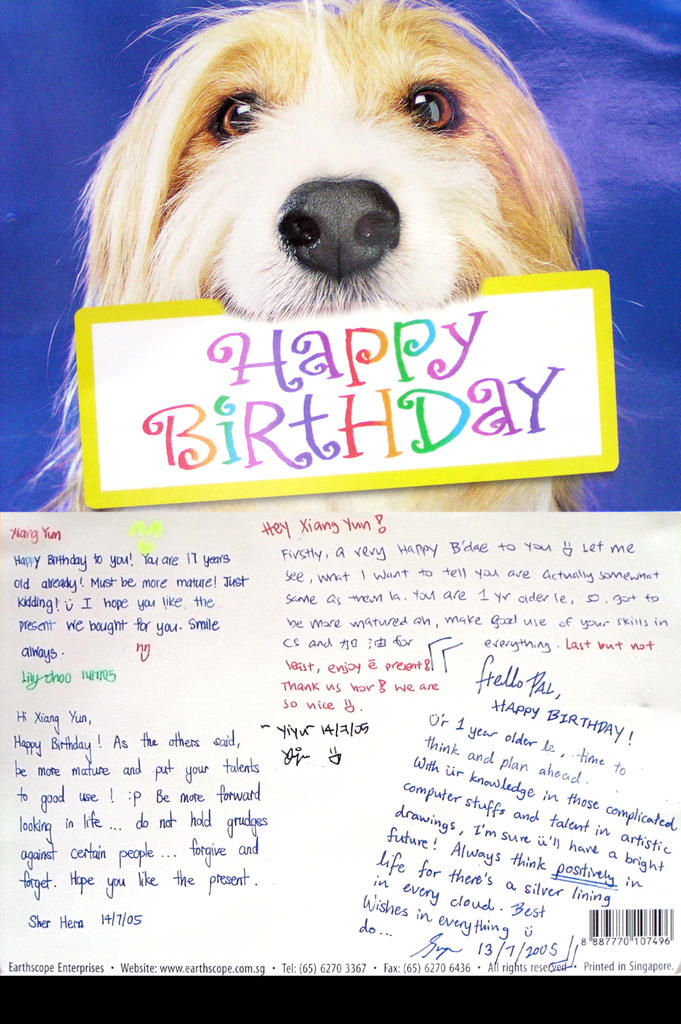 Happy
Birthday
Xiang Yun
Happy Birthday to you! You are 17 years
old already! Must be more mature! Just
kidding! Ü I hope you like the
present we bought for you. Smile
always.
Lily choo 14/7/05
Hey Xiang Yun!
Firstly, a very Happy B'dae to you Ü Let me
see, what I want to tell you are actually somewhat
same as them la. You are 1 yr older le, so got to
be more matured ah, make good use of your skills in
CS and 加油 for everything. Last but not
least, enjoy ē present!
Thank us hor! We are
so nice Ü.
~ Yiyun 14/7/05
Hi Xiang Yun,
Happy Birthday! As the others said,
be more mature and put your talents
to good use! :P Be more forward
looking in life... do not hold grudges
against certain people... forgive and
forget. Hope you like the present.
Sher Hern 14/7/05
Hello PAL,
HAPPY BIRTHDAY!
Ür 1 year older le, time to
think and plan ahead.
With ür knowledge in those complicated
computer stuffs and talent in artistic
drawings, I'm sure ü'll have a bright
future! Always think positively in
life for there's a silver lining
in every cloud. Best
Wishes in everything ü
do...
13/7/2005
8 887770 107496
Earthscope Enterprises • Website: www.earthscope.com.sg • Tel: (65) 6270 3367 • Fax: (65) 6270 6436 • All rights reserved • Printed in Singapore.